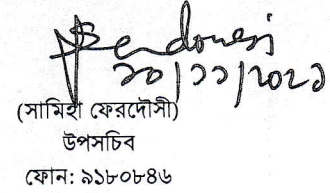 ১০/১১/২০২১
(সামিহা ফেরদৌসী)
উপসচিব
ফোন: ৯১৮০৮৪৬